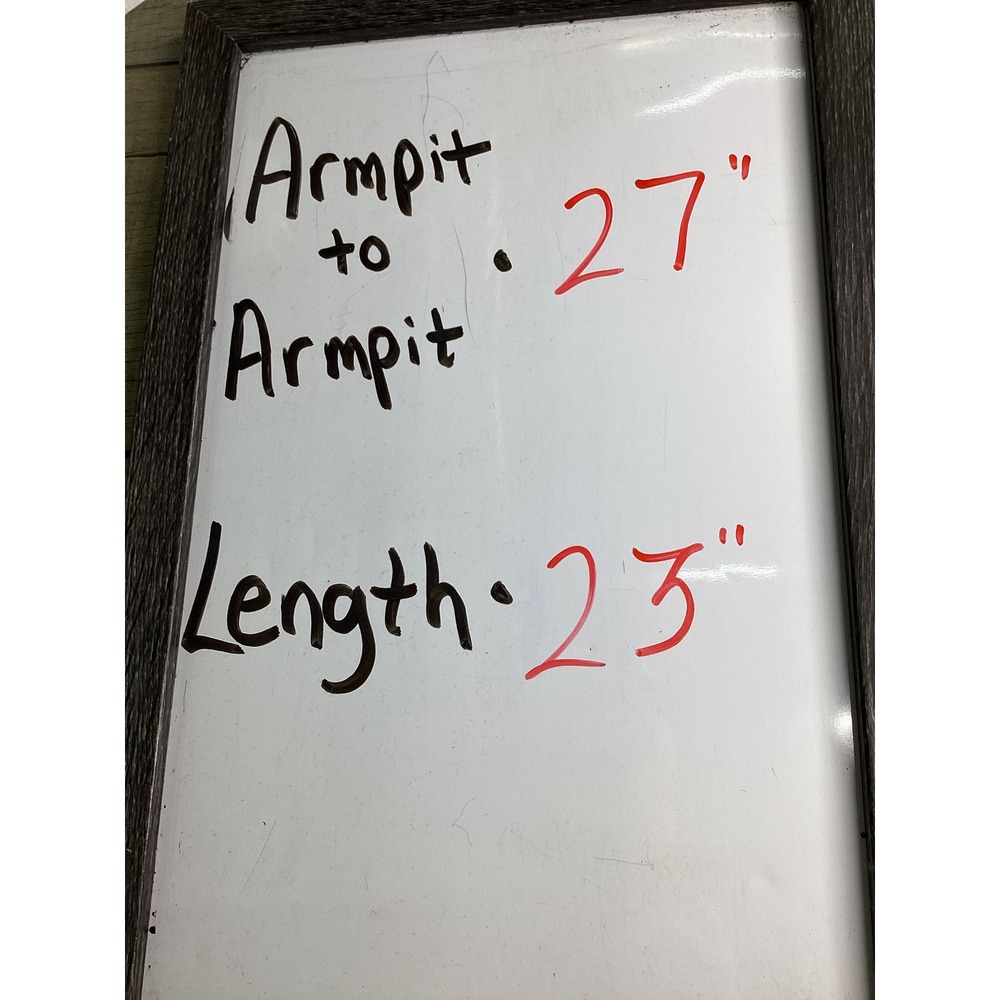 Armpit
to • 27"
Armpit
Length • 23"